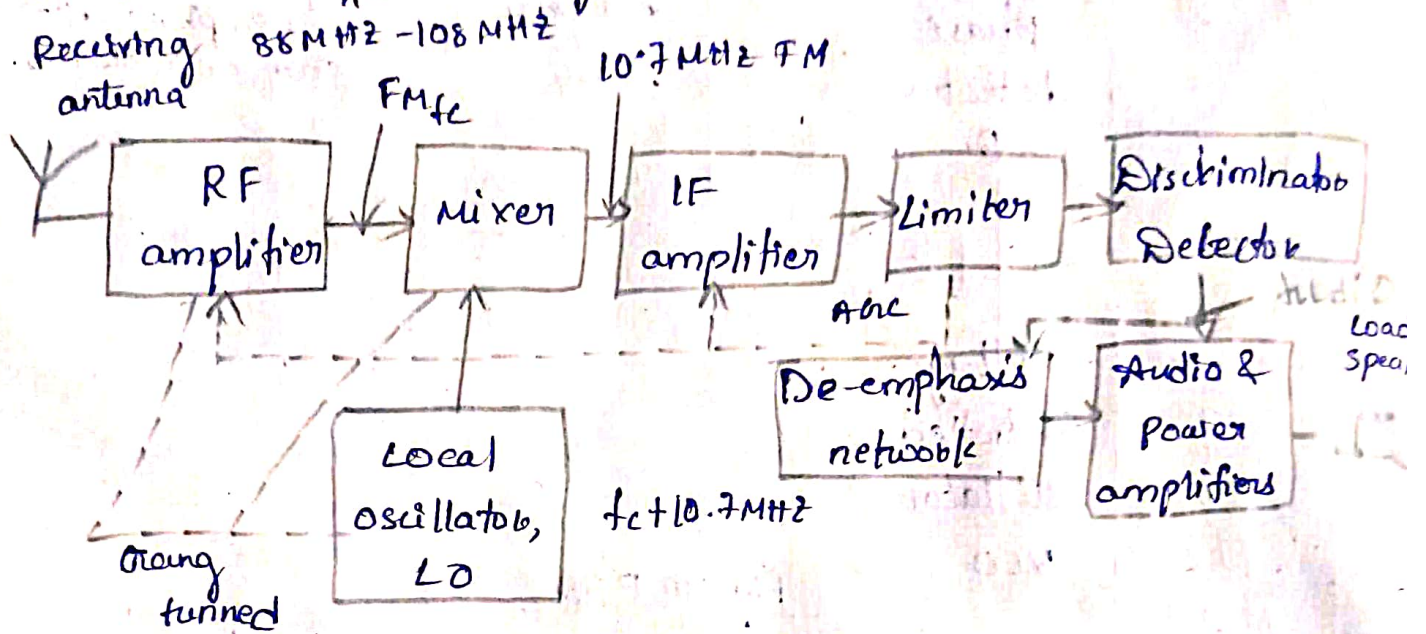 Receiving 88 MHZ - 108 MHZ
antenna
FMfc
10.7 MHz FM
RF
amplifier
Mixer
IF
amplifier
Limiter
Discriminator
Detector
AGC
Load
De-emphasis
network
Audio &
Power
amplifiers
Local
oscillator,
LO
fc+10.7MHZ
tunned